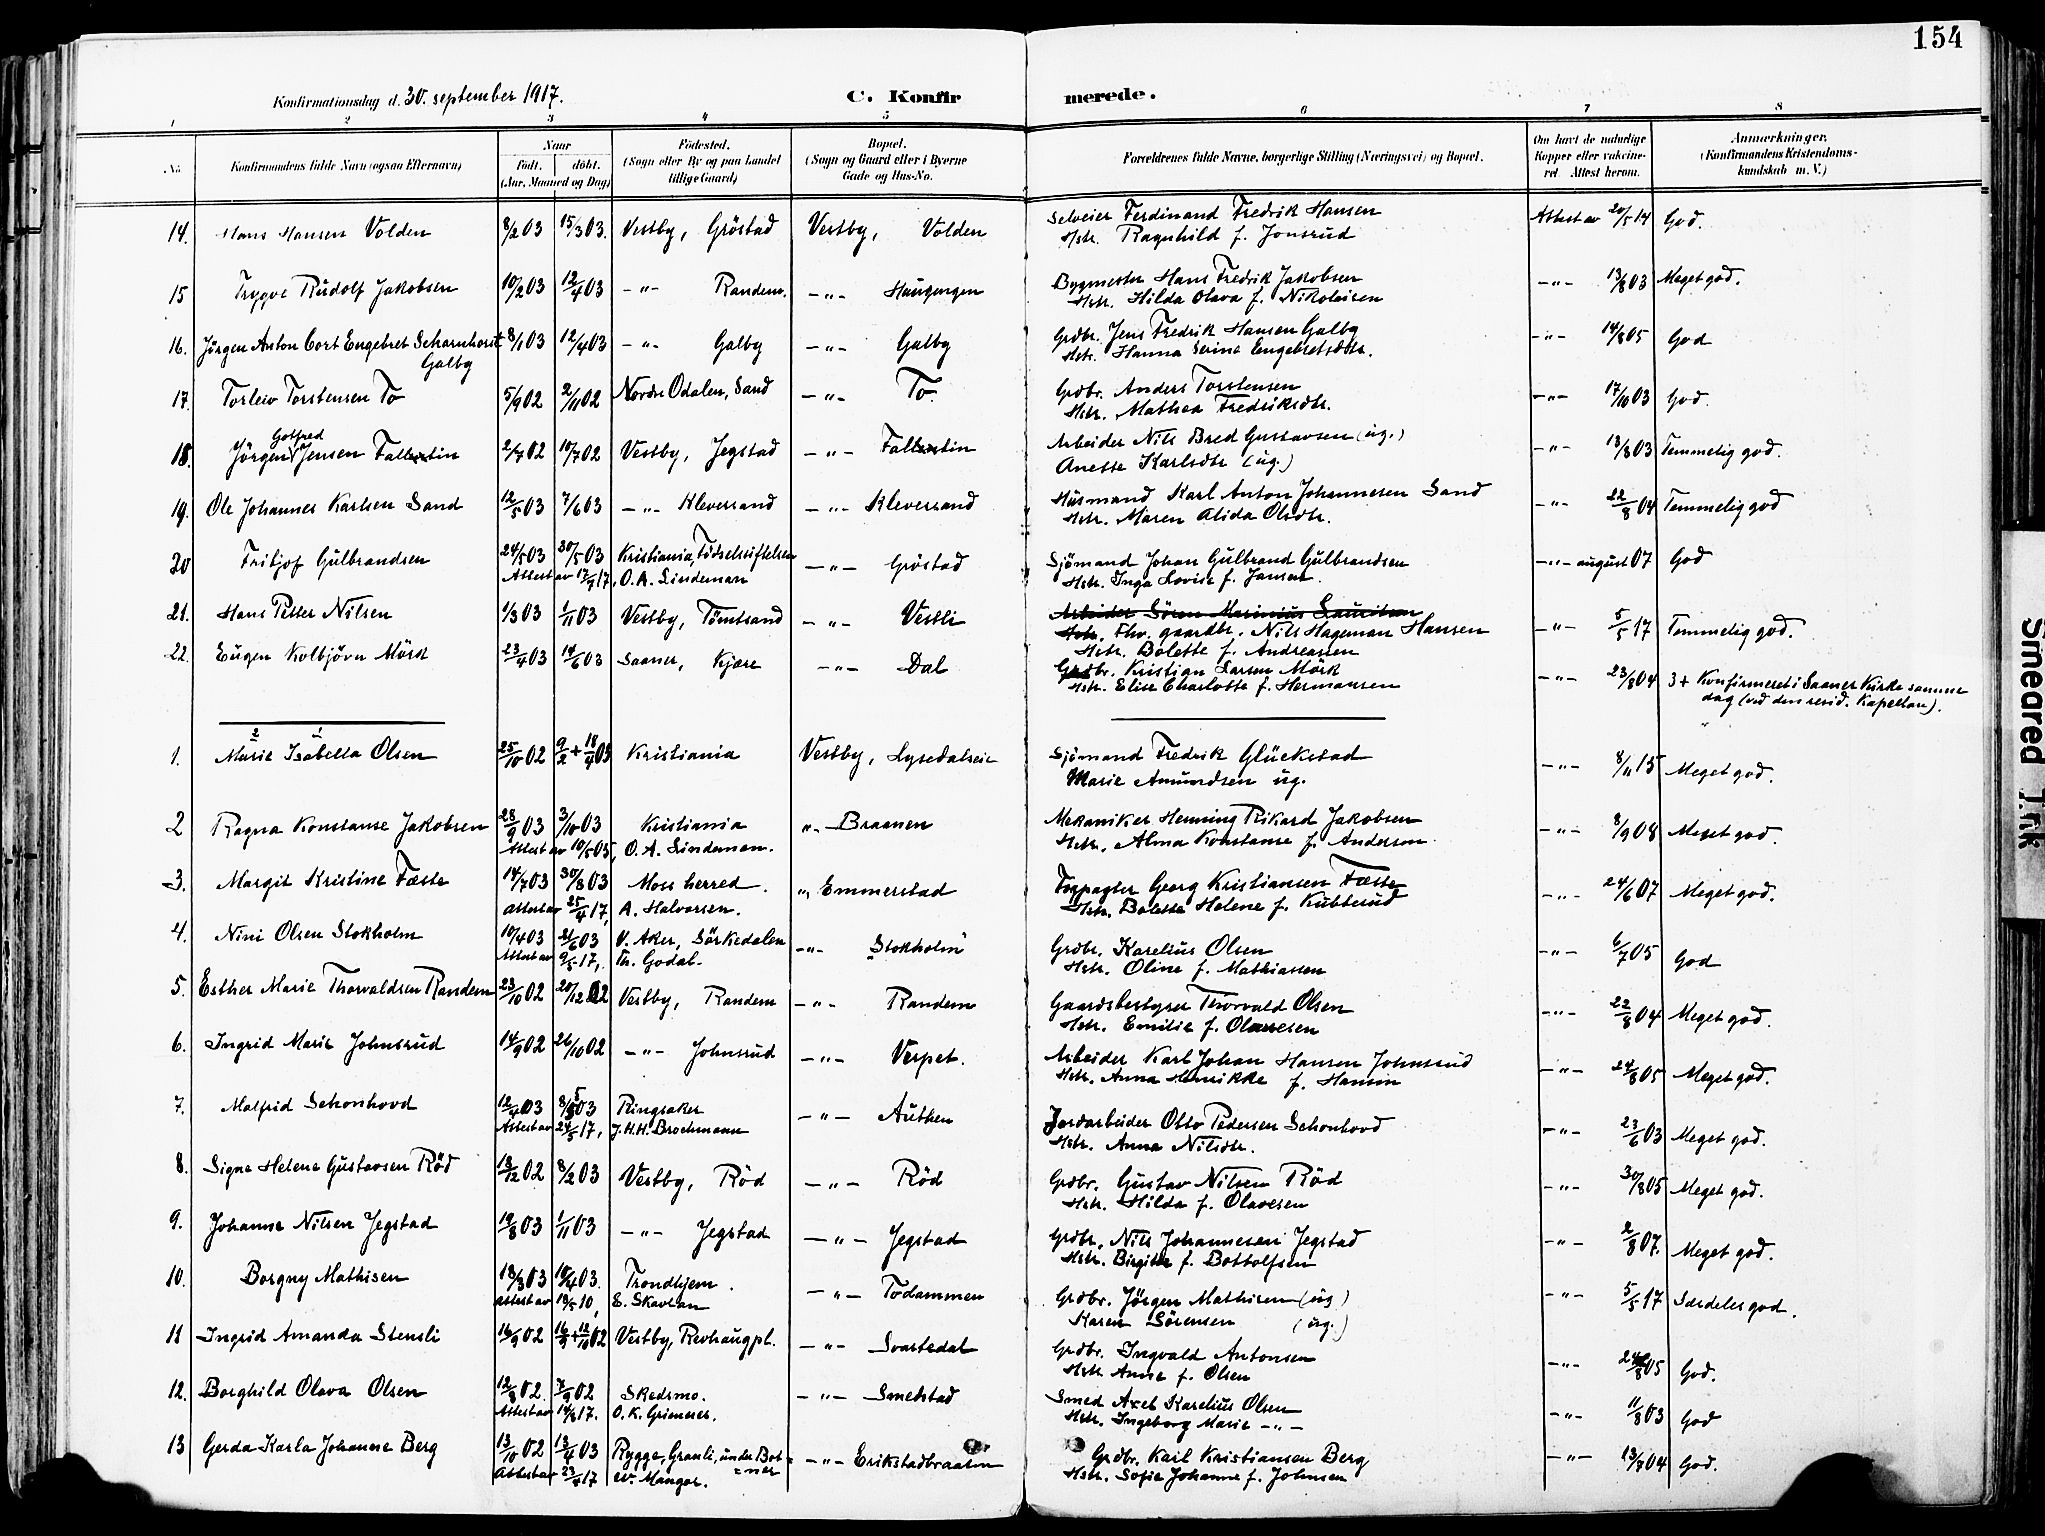 154
Konfirmationsdag d. 30. september 1917. C. Konfirmerede.
1 2 3 4 5 6 7 8
No. Konfirmandens fulde Navn (ogsaa Efternavn) Naar født. døbt. (Aar, Maaned og Dag) Fødested. (Sogn eller By og paa Landet tillige Gaard) Bopæl. (Sogn og Gaard eller i Byerne Gade og Hus-No. Forældrenes fulde Navne, borgerlige Stilling (Næringsvei) og Bopæl. Om havt de naturlige Kopper eller vaccineret Attest herom. Anmærkninger. (Konfirmandens Kristendomskundskab m. V.)
14. Hans Hansen Volden 8/2 03 15/3 03. Vestby, Gröstad Vestby, Volden Selveier Ferdinand Fredrik Hansen Attest av 20/5 14 God.
Hstr. Ragnhild f. Jonsrud
15 Trygve Rudolf Jakobsen 10/2 03 12/4 03 -"- Randem. -"- Haugengen Bygmester Hans Fredrik Jakobsen -"- 13/8 03 Meget god.
Hstr. Hilda Olava f. Nikolaisen
16. Jörgen Anton Cort Engebret Scharnhorst Galby 8/1 03 12/4 03 -"- Galby -"- Galby Grdbr. Jens Fredrik Hansen Galby -"- 14/8 05 God
Hstr. Hanna Serine Engebretsdtr.
17. Torleiv Torstensen To 5/9 02 2/11 02 Nordre Odalen, Sand -"- To Grdbr. Anders Torstensen -"- 17/10 03 God.
Hstr. Mathea Fredriksdtr.
18. Jörgen Gotfred Jensen Fallentin 2/4 02 10/7 02 Vestby, Jegstad -"- Fallentin Arbeider Nils Bred Gustavsen (ug.) -"- 13/8 03 Temmelig god.
Anette Karlsdtr (ug.)
19. Ole Johannes Karlsen Sand 12/5 03 7/6 03 -"- Kleversand -"- Kleversand Husmand Karl Anton Johannesen Sand -"- 22/8 04 Temmelig god
Hstr. Maren Alida Olsdtr.
20 Fritjof Gulbrandsen 24/5 03 30/5 03 Kristiania, Födselsstiftelsen -"- Gröstad Sjömand Johan Gulbrand Gulbrandsen -"- august 07 God
Attest av 17/9 17, O. A. Lindeman Hstr. Inga Lovise f. Jansen.
21. Hans Petter Nilsen 1/3 03 1/11 03 Vestby, Tömtsand -"- Vestli Arbeider Sören Marinius Lauritsen
Hstr. Fhv. gaardbr. Nils Hageman Hansen -"- 5/5 17 Temmelig god.
Hstr. Bolette f. Andreasen
22. Eugen Kolbjörn Mörk 23/4 03 14/6 03 Saaner, Kjære -"- Dal Grdbr. Kristian Larsen Mörk -"- 23/8 04 3+ Konfirmeret i Saaner Kirke samme dag (ved den resid. Kapellan).
Hstr. Elise Charlotte f. Hermansen
1. Marie Isabella Olsen 25/10 02 9/2 + 18/4 03 Kristiania Vestby, Lysedalseie Sjömand Fredrik Glückstad -"- 8/11 15 Meget god.
Marie Amundsen ug.
2 Ragna Konstanse Jakobsen 28/9 03 3/10 03 Kristiania "- Braanen Mekaniker Henning Rikard Jakobsen -"- 8/9 08 Meget god.
Attest av 10/5 05, O. A. Lindeman. Hstr. Alma Konstanse f. Andersen
3. Margit Kristine Fæste 14/7 03 30/8 03 Moss herred. " Emmerstad Forpagter Georg Kristiansen Fæste -"- 24/6 07 Meget god.
Attest av 25/4 17, A. Halvorsen. Hstr. Bolette Helene f. Kubberud
4. Nini Olsen Stokholm 10/4 03 21/6 03 V. Aker, Sörkedalen -"- Stokholm Grdbr. Karelius Olsen -"- 6/7 05 God
Attest av 9/5 17, Th. Godal. Hstr. Oline f. Mathiassen
5. Esther Marie Thorvaldsen Randem 23/10 02 20/12 02 Vestby, Randem -"- Randem Gaardsbestyrer Thorvald Olsen -"- 22/8 04 Meget god.
Hstr. Emilie f. Olavesen
6. Ingrid Marie Johnsrud 14/9 02 26/10 02 -"- Johnsrud -"- Verpet. Arbeider Karl Johan Hansen Johnsrud -"- 24/8 05 Meget god.
Hstr. Anna Henrikke f. Hansen
7. Malfrid Schonhovd 12/4 03 8/5 03 Ringsaker -"- Authen Jordarbeider Otto Pedersen Schonhovd -"- 23/6 03 Meget god.
Attest av 24/5 17, J. H. H. Brochmann Hstr. Anna Nilsdtr.
8. Signe Helene Gustavsen Röd 18/12 02 8/2 03 Vestby, Röd -"- Röd Grdbr. Gustav Nilsen Röd -"- 30/8 05 Meget god.
Hstr. Hilda f. Olavesen
9. Johanne Nilsen Jegstad 19/8 03 1/11 03 -"- Jegstad -"- Jegstad Grdbr. Nils Johannesen Jegstad -"- 2/8 07. Meget god.
Hstr. Birgitte f. Bottolfsen
10. Borgny Mathisen 18/3 03 18/4 03. Trondhjem. -"- Todammen Grdbr. Jörgen Mathisen (ug) -"- 5/5 17 Særdeles god.
Attest av 19/5 10, E. Skavlan Karen Sörensen (ug.)
11 Ingrid Amanda Stensli 16/9 02 16/9 + 12/10 02 Vestby, Revhaugpl. -"- Svartedal Grdbr. Ingvald Antonsen -"- 24/8 05 God.
Hstr. Anna f. Olsen
12. Borghild Olava Olsen 12/8 02 7/9 02 Skedsmo. -"- Smedstad Smed Axel Karelius Olsen -"- 11/8 03 God
Attest av 14/8 17. O. K. Grimeier. Hstr. Ingeborg Marie -"-
13 Gerda Karla Johanne Berg 13/10 02 13/4 03 Rygge, Granli, under Botner -"- Erikstadbraaten Grdbr. Karl Kristiansen Berg -"- 13/8 04 God.
Attest av 23/4 17 W. Mangor. Hstr. Sofie Johanne f. Johnsen
Smeared Trik